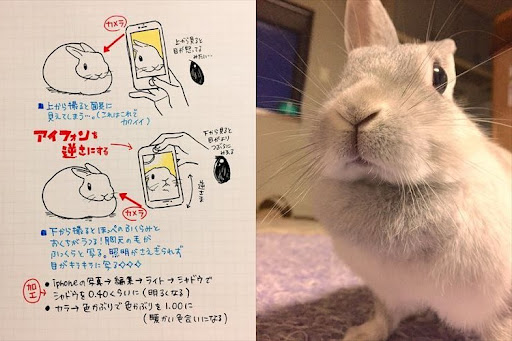 カメラ
上から見ると
目が怒ってる
みたい…
■上から撮ると面長に
見えてしまう…。(これはこれで
カワイイ)
アイフォンを
逆さにする
下から見ると
目がより
つぶらに
みえる
逆さま
カメラ
■下から撮るとほっぺのふくらみと
おくちがうつる!胸元の毛が
ふっくらと写る。照明がさえぎられず
目がキラキラに写る◇◇◇
加工
●iphoneの写真→編集→ライト→シャドウで
シャドウを0.40くらいに(明るくなる)
●カラー→色かぶりで色かぶりを1.00に
(暖かい色合いになる)